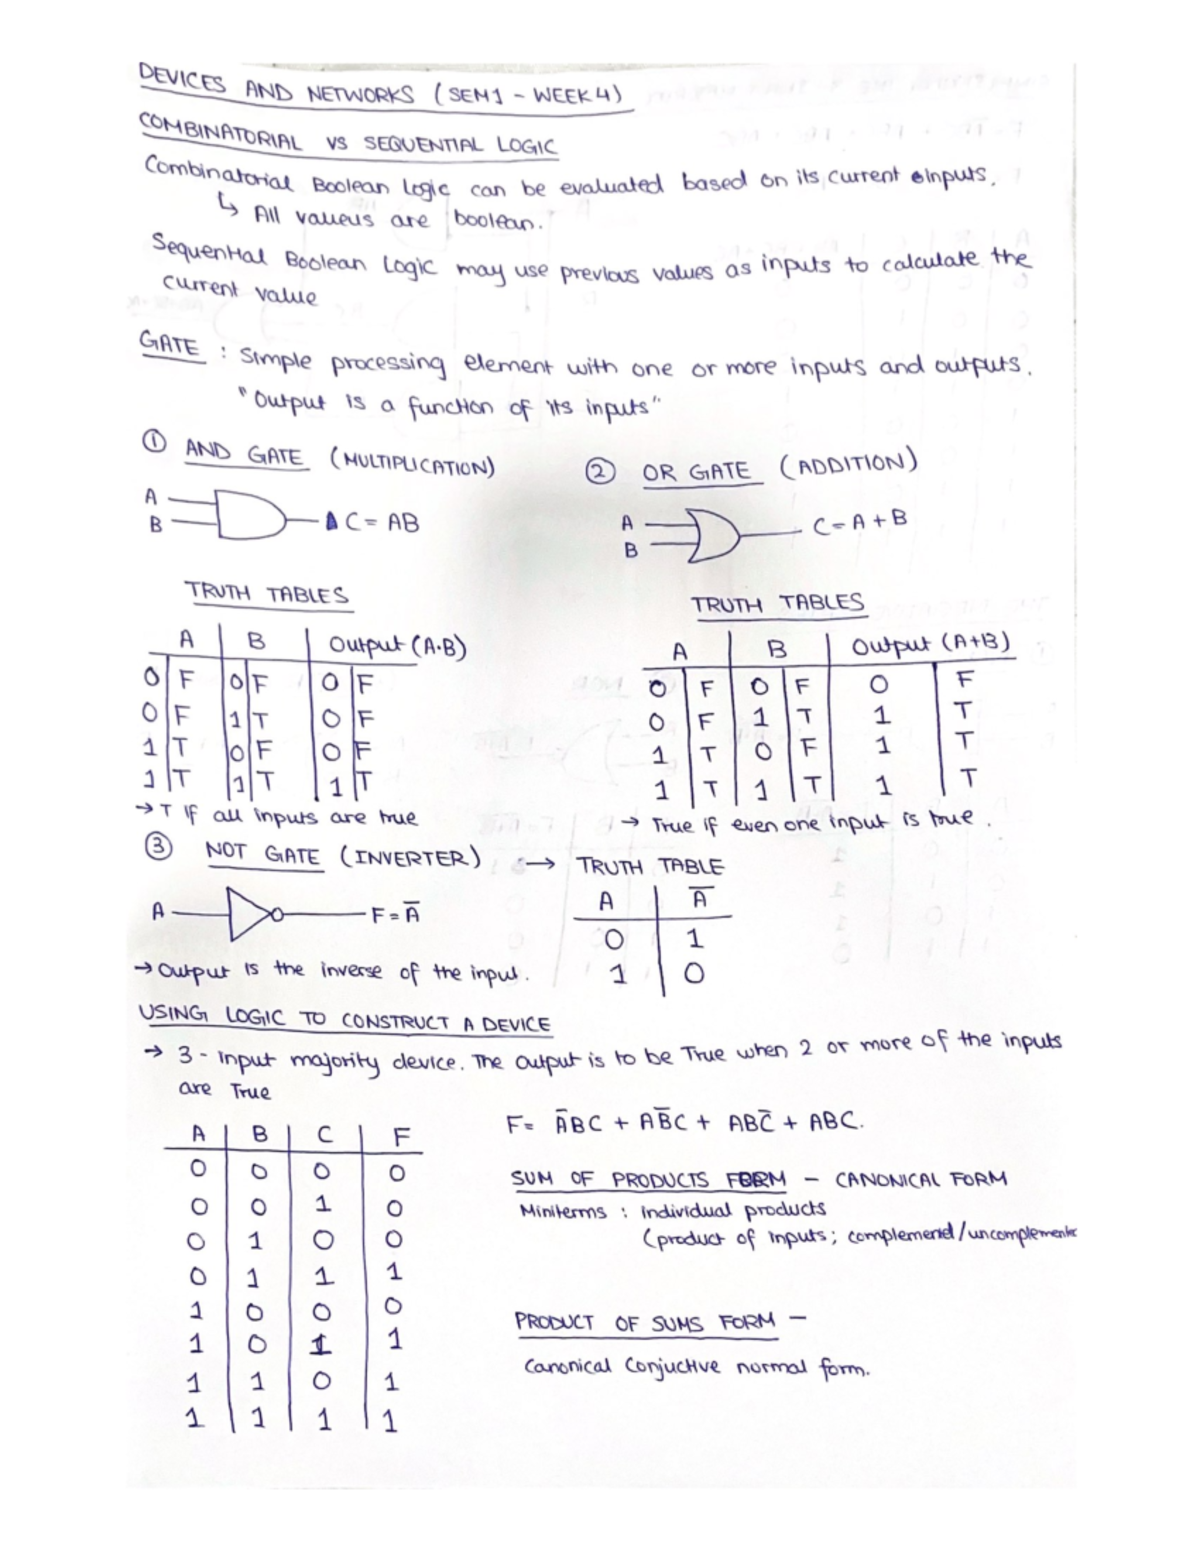 DEVICES AND NETWORKS (SEM1 - WEEK 4)
COMBINATORIAL VS SEQUENTIAL LOGIC
Combinatorial Boolean Logic can be evaluated based on its current inputs.
↳ All valueus are boolean.
Sequential Boolean Logic may use previous values as inputs to calculate the
current value
GATE : Simple processing element with one or more inputs and outputs.
"Output is a function of its inputs"
① AND GATE (MULTIPLICATION)
A
B
C = AB
② OR GATE (ADDITION)
A
B
C = A + B
TRUTH TABLES
A | B | Output (A·B)
0 | F | 0 | F | 0 | F
0 | F | 1 | T | 0 | F
1 | T | 0 | F | 0 | F
1 | T | 1 | T | 1 | T
→ T if all inputs are true
TRUTH TABLES
A | B | Output (A+B)
0 | F | 0 | F | 0 | F
0 | F | 1 | T | 1 | T
1 | T | 0 | F | 1 | T
1 | T | 1 | T | 1 | T
→ True if even one input is true.
③ NOT GATE (INVERTER) → TRUTH TABLE
A
F = A̅
A | A̅
0 | 1
1 | 0
→ Output is the inverse of the input.
USING LOGIC TO CONSTRUCT A DEVICE
→ 3 - Input majority device. The output is to be True when 2 or more of the inputs
are True
A | B | C | F
0 | 0 | 0 | 0
0 | 0 | 1 | 0
0 | 1 | 0 | 0
0 | 1 | 1 | 1
1 | 0 | 0 | 0
1 | 0 | 1 | 1
1 | 1 | 0 | 1
1 | 1 | 1 | 1
F = A̅BC + AB̅C + ABC̅ + ABC.
SUM OF PRODUCTS FORM - CANONICAL FORM
Miniterms : individual products
(product of inputs; complemented/uncomplemente
PRODUCT OF SUMS FORM -
Canonical Conjuctive normal form.